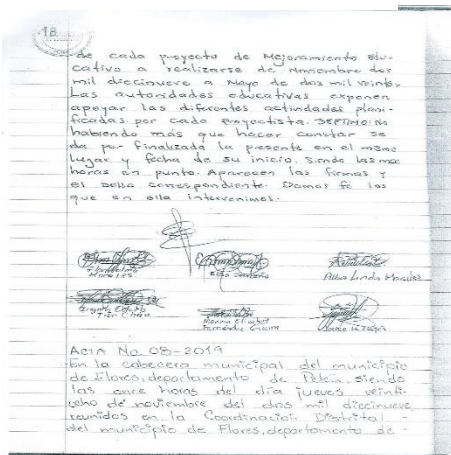 18
de cada proyecto de Mejoramiento Edu-
cativo a realizarse de Noviembre dos
mil diecinueve a Mayo de dos mil veinte.
Las autoridades educativas exponen
apoyar las diferentes actividades plani-
ficadas por cada proyectista. SEPTIMO: No
habiendo más que hacer constar se
da por finalizada la presente en el mismo
lugar y fecha de su inicio, siendo las
horas en punto. Aparecen las firmas y
el sello correspondiente. Damos fé los
que en ella intervenimos.
Morales
Alba Linda Morales
Acta No. 08-2019
En la cabecera municipal del municipio
de Flores, departamento de Petén, siendo
las once horas del día jueves veinti-
ocho de noviembre del dos mil diecinueve,
reunidos en la Coordinación Distrital -
del municipio de Flores, departamento de -